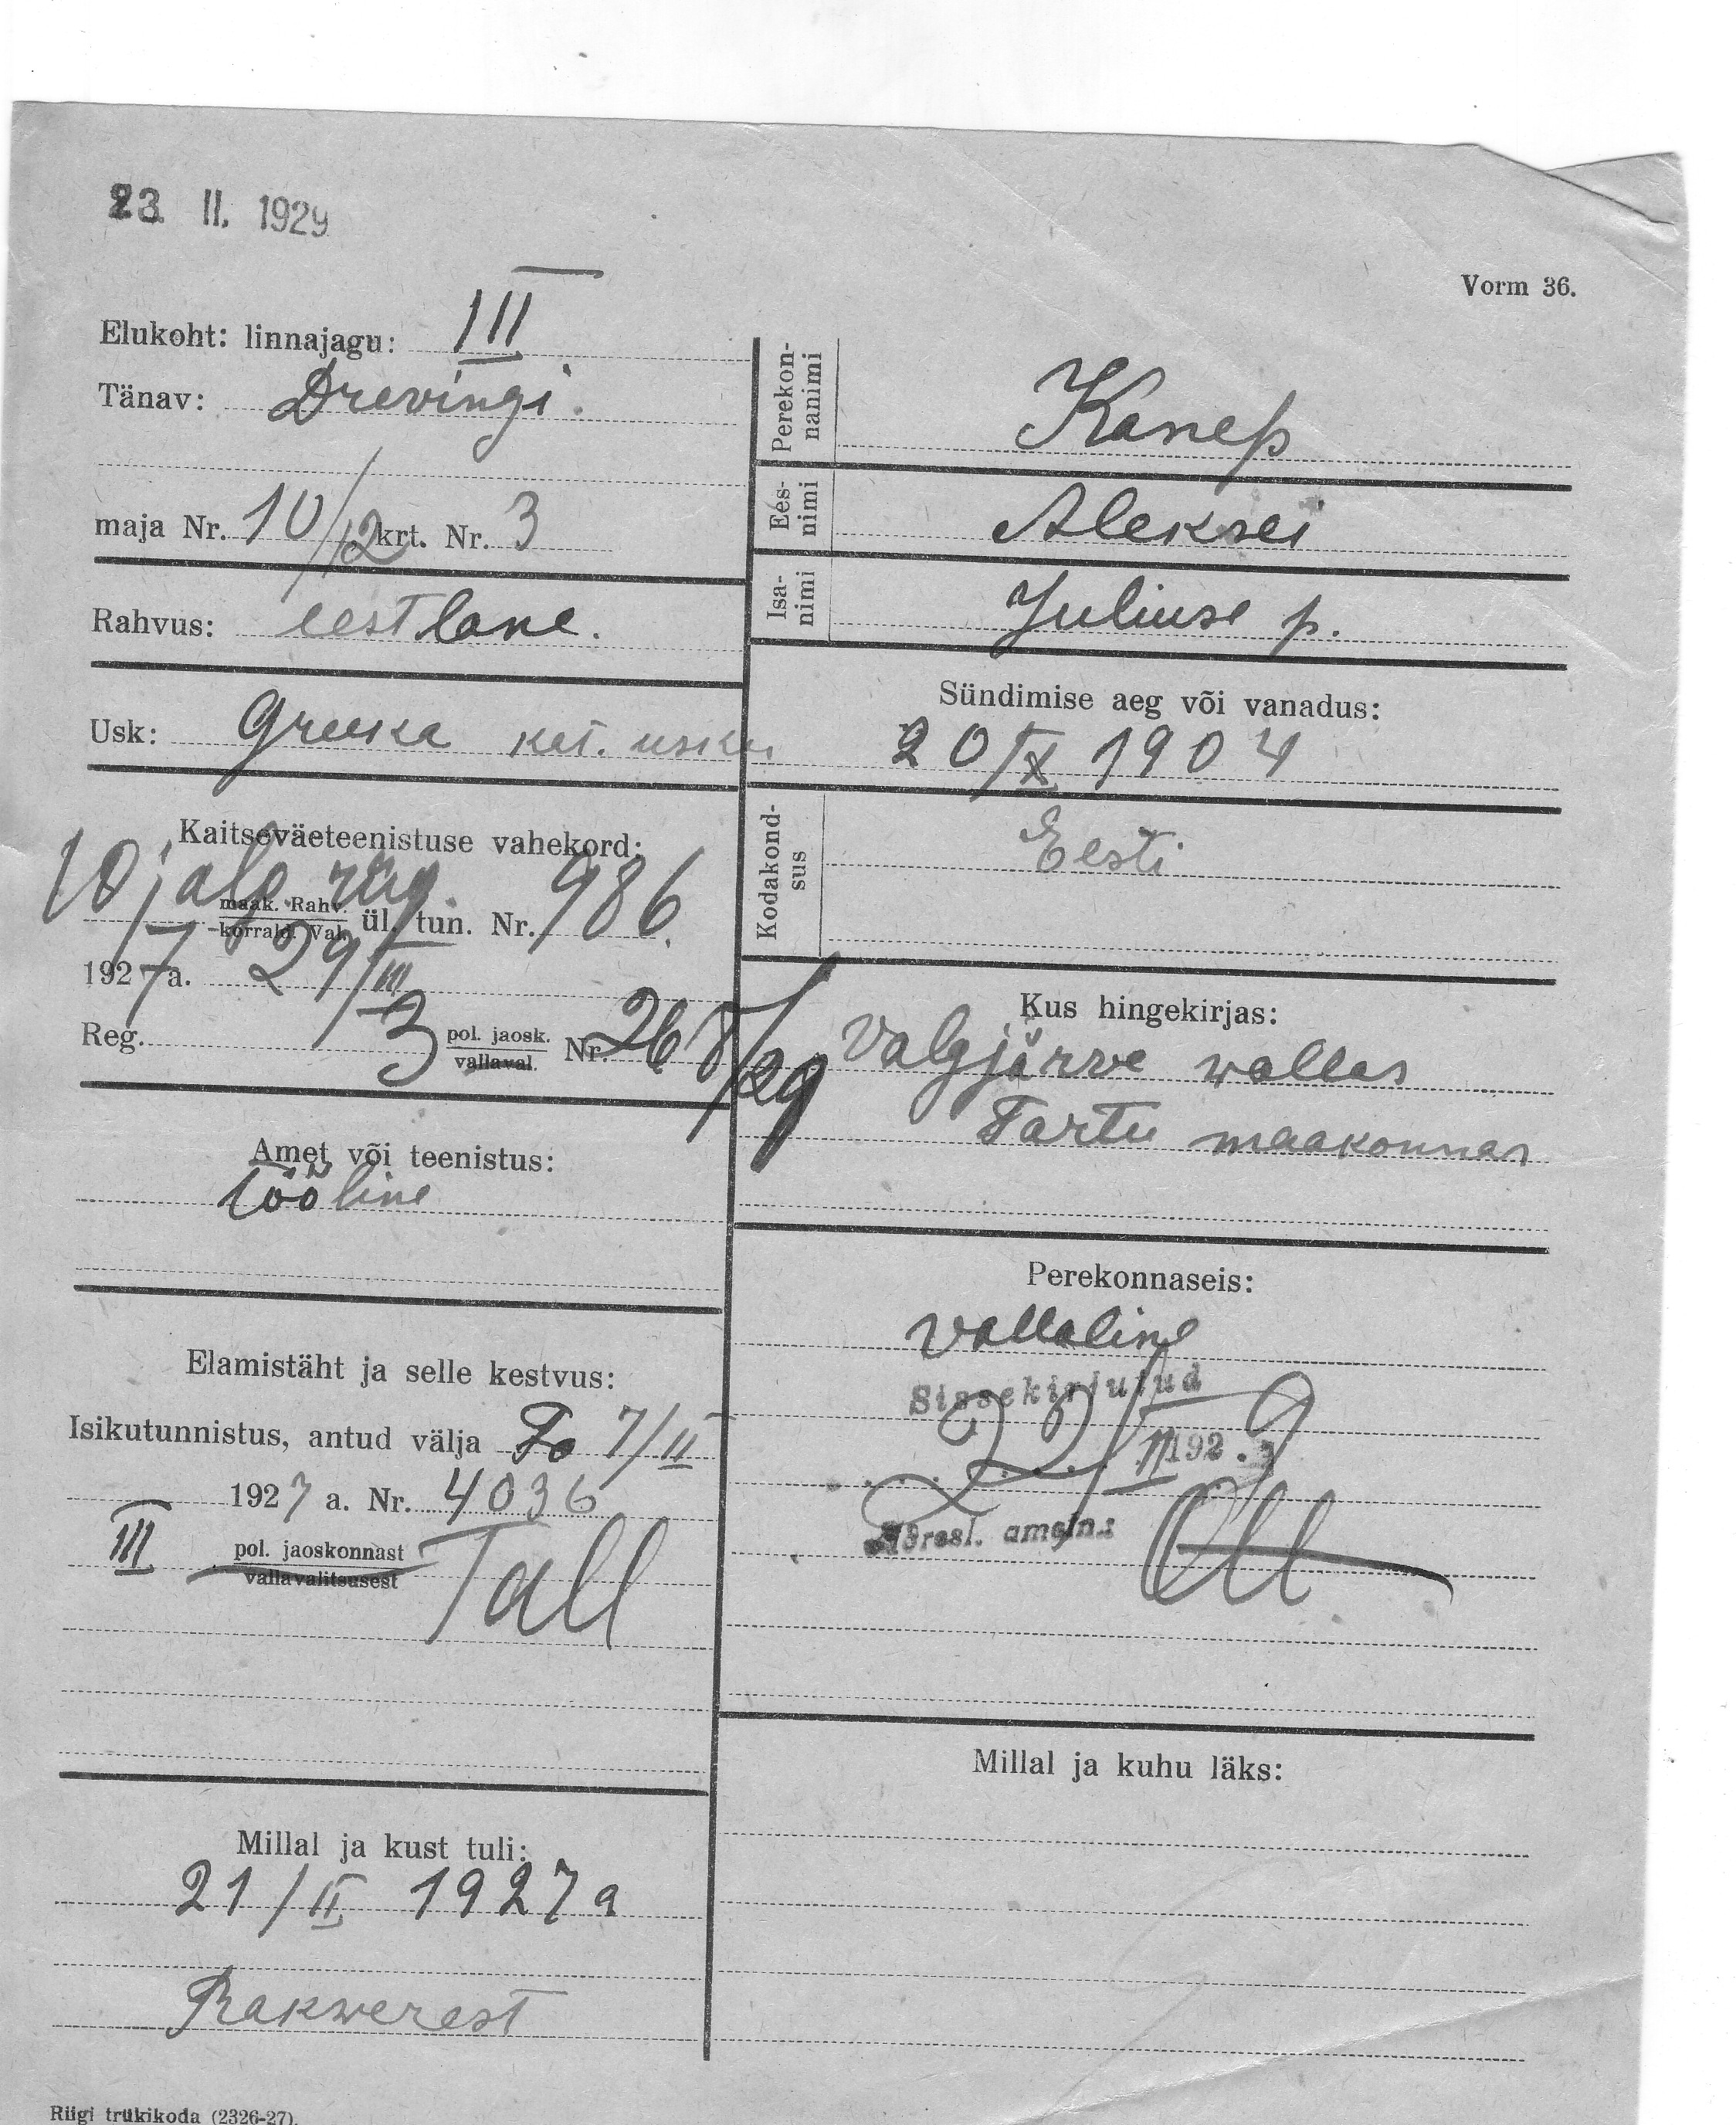 23. II. 1929
Vorm 36.
Elukoht: linnajagu: III
Tänav: Drevingi.
maja Nr. 10/12 krt. Nr. 3
Rahvus: eestlane.
Usk: Greeka kat. usku
Kaitseväeteenistuse vahekord:
10 jalg. rüg.
maak. Rahv.
korrald. Val. ül. tun. Nr. 986.
1927 a. 29/III
Reg. 3 pol. jaosk.
vallaval. Nr. 268/29
Amet või teenistus:
tööline
Elamistäht ja selle kestvus:
Isikutunnistus, antud välja To 7/II
1927 a. Nr. 4036
III pol. jaoskonnast
vallavalitsusest Tall
Millal ja kust tuli:
21/II 1927 a
Rakwerest
Perekonnanimi Kanep
Eesnimi Aleksei
Isanimi Juliuse p.
Sündimise aeg või vanadus:
20/X 1904
Kodakondsus Eesti
Kus hingekirjas:
Valgjärwe wallas
Tartu maakonnas
Perekonnaseis:
vallaline
Sissekirjutud
22/II 192.9
Adresl. ametn.:
Millal ja kuhu läks:
Riigi trükikoda (2326-27).